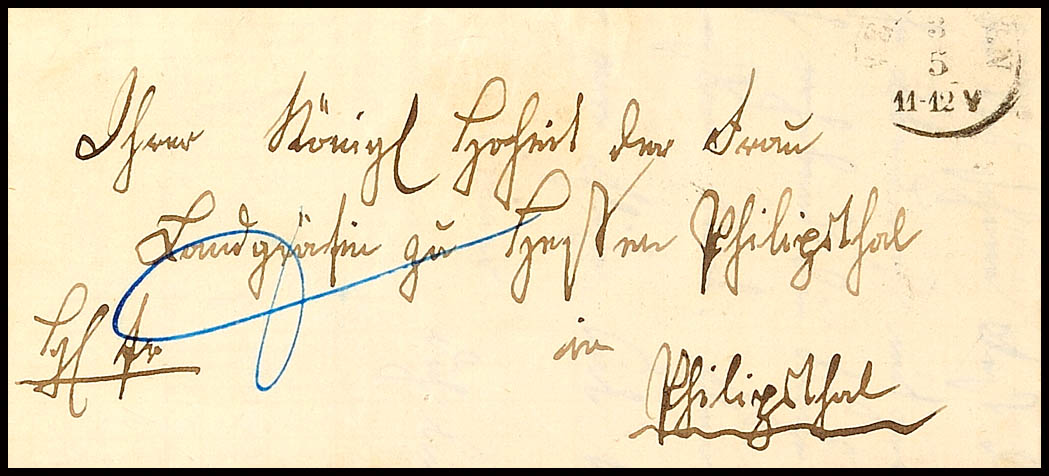 8
5
11-12 V
Ihrer Königl Hoheit der Frau
Landgräfin zu Hessen Philipsthal
in
Philipsthal